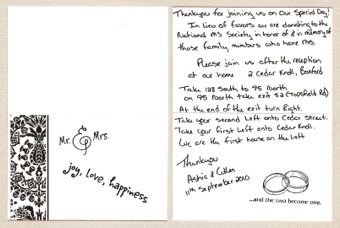 Mr. & Mrs.
joy, love, happiness
Thankyou for joining us on Our Special Day!
In lieu of favors we are donating to the
National MS Society in honor of & in memory of
those family members who have MS.
Please join us after the reception
at our home 2 Cedar Knoll, Boxford
Take 128 South to 95 North
on 95 North take exit 52 (Topsfield Rd)
At the end of the exit turn Right.
Take your second Left onto Cedar Street.
Take your first Left onto Cedar Knoll.
We are the first house on the Left
Thankyou
11th September 2010
...and the two become one.